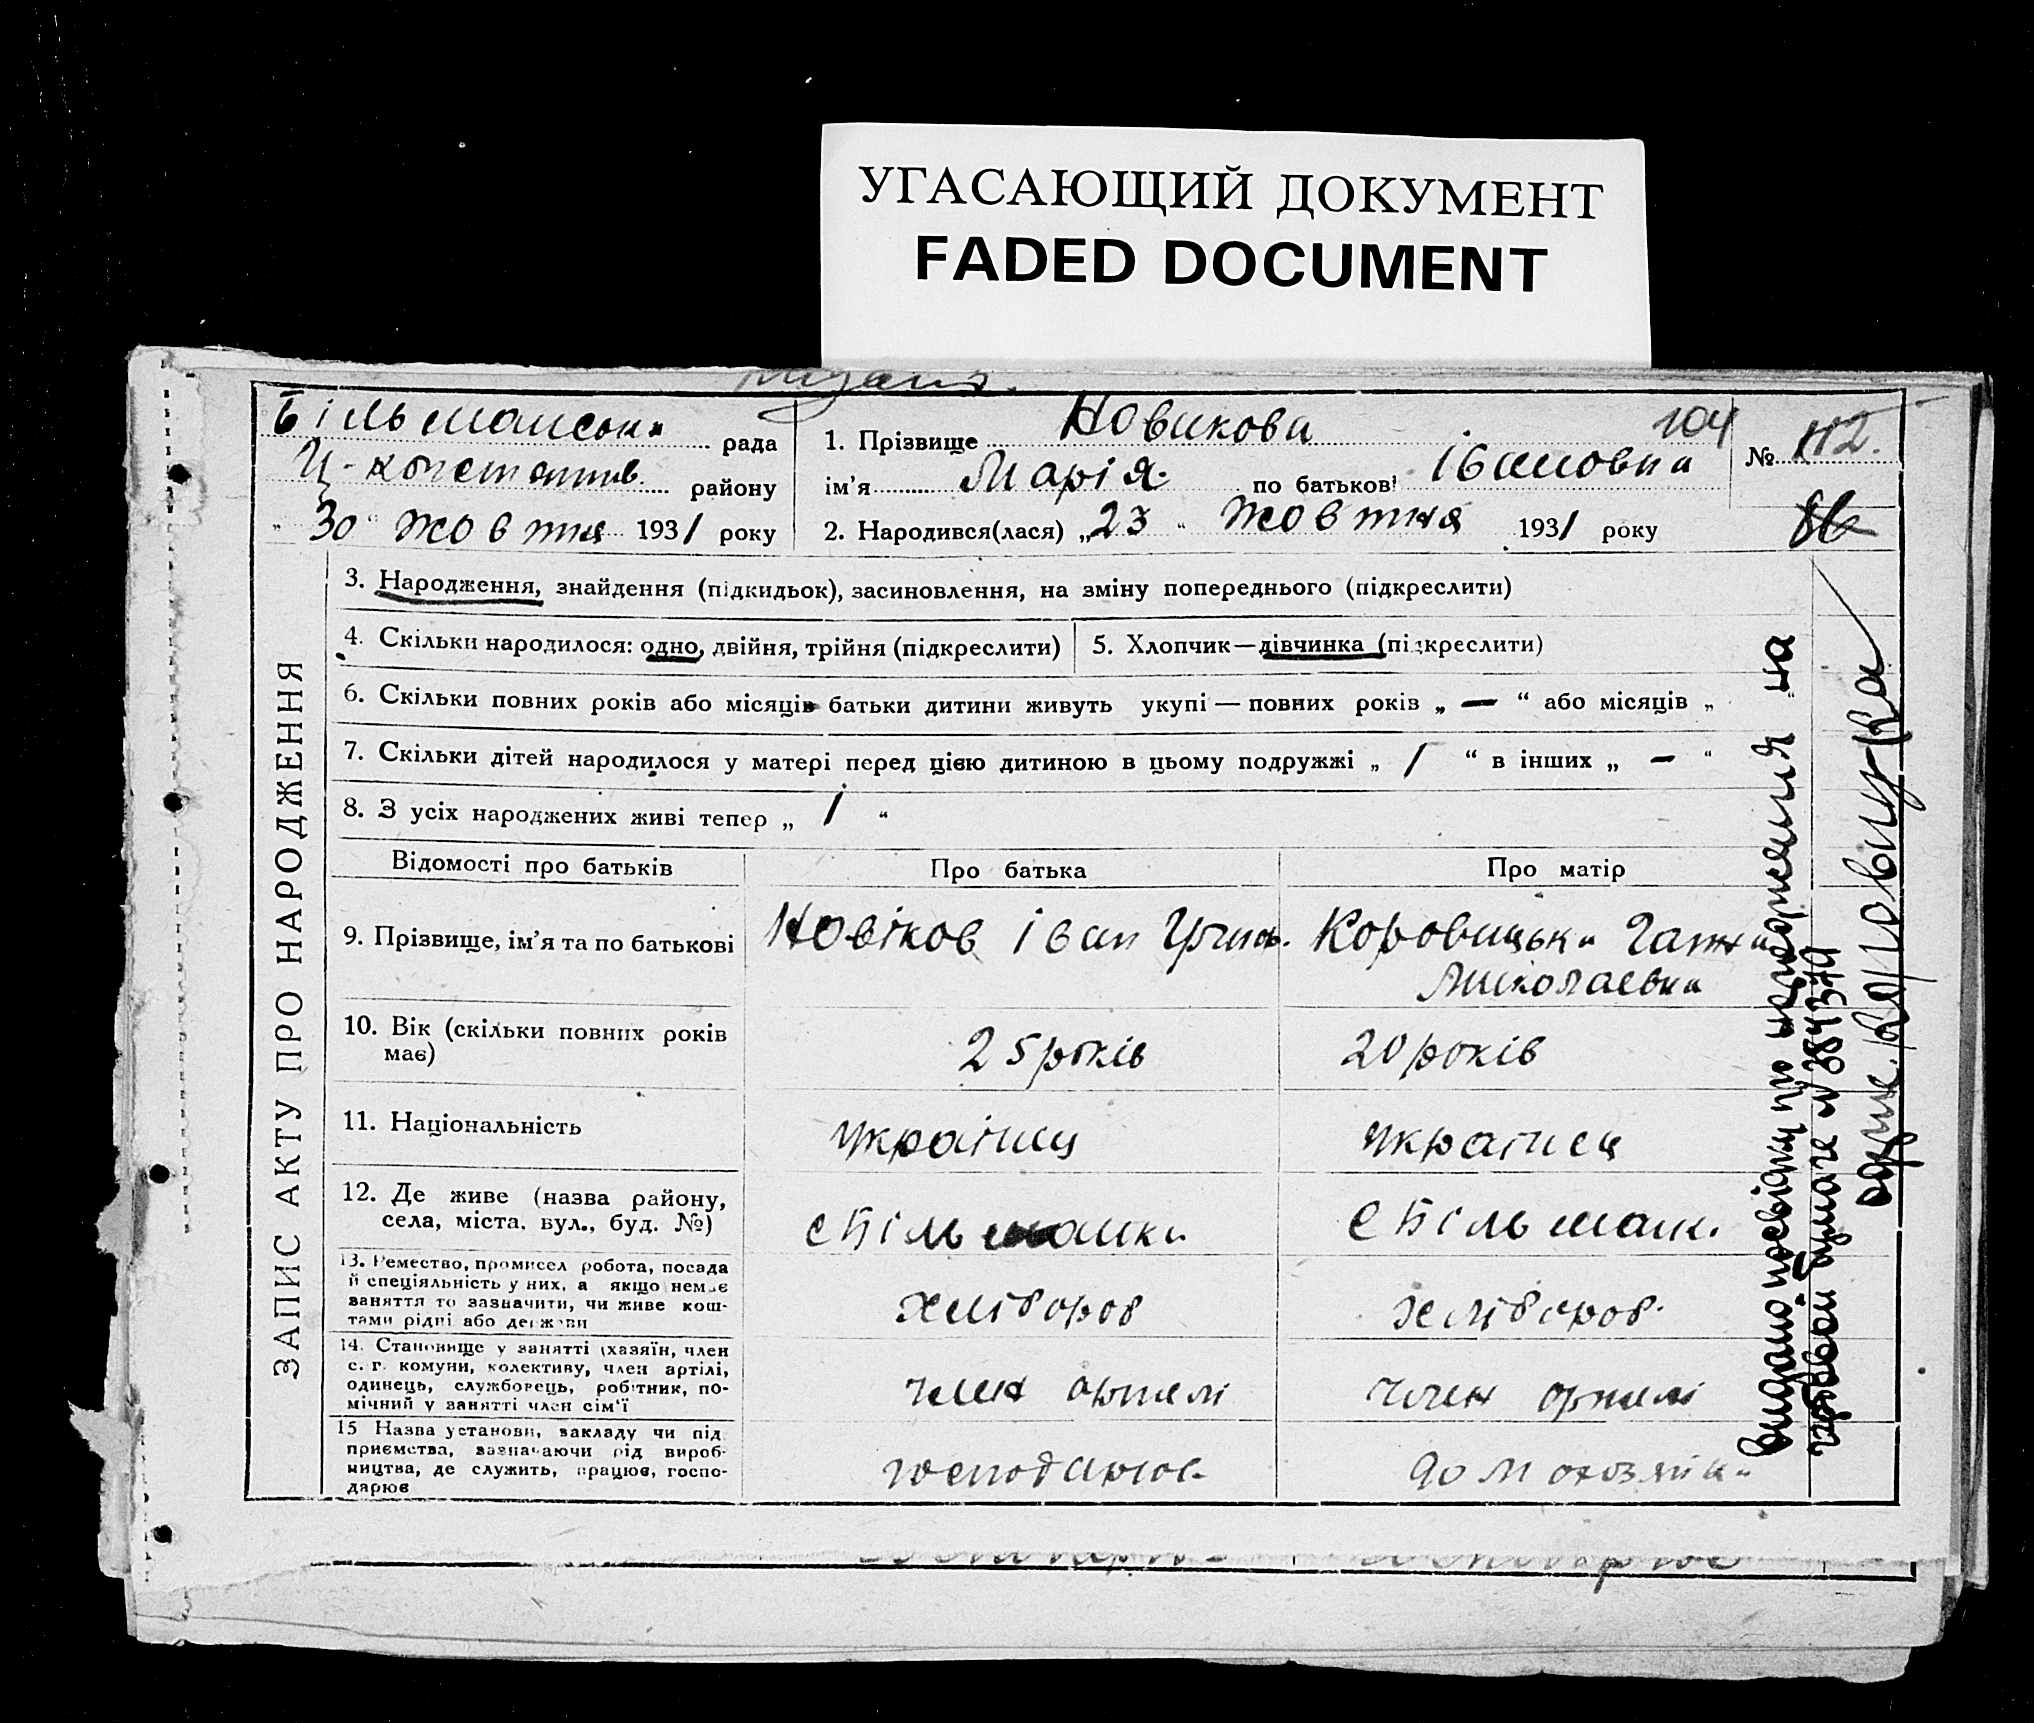 УГАСАЮЩИЙ ДОКУМЕНТ
FADED DOCUMENT
Більманська рада
Ц-констянтив. району
" 30 " жовтня 1931 року
1. Прізвище Новикова 104
ім'я Марія. по батькові Івановна
2. Народився(лася) „ 23 " жовтня 1931 року
№ 112.
86
ЗАПИС АКТУ ПРО НАРОДЖЕННЯ
3. Народження, знайдення (підкидьок), засиновлення, на зміну попереднього (підкреслити)
4. Скільки народилося: одно, двійня, трійня (підкреслити)
5. Хлопчик—дівчинка (підкреслити)
6. Скільки повних років або місяців батьки дитини живуть укупі — повних років „ — “ або місяців „ “
7. Скільки дітей народилося у матері перед цією дитиною в цьому подружжі „ 1 “ в інших „ — “
8. З усіх народжених живі тепер „ 1 “
Відомості про батьків
Про батька
Про матір
9. Прізвище, ім'я та по батькові
Новіков Іван
Коровицька
Миколаевна
10. Вік (скільки повних років
має)
25 років
20 років
11. Національність
українец
украінец
12. Де живе (назва району,
села, міста, вул., буд. №)
с Більманка
с Більман.
13. Ремество, промисел робота, посада
й спеціяльність у них, а якщо немає
заняття то зазначити, чи живе кош-
тами рідні або держави
хлібороб
хлібороб.
14. Становище у занятті (хазяїн, член
с.-г. комуни, колективу, член артілі,
одинець, службовець, робітник, по-
мічний у занятті член сім'ї
член артилі
член артилі
15 Назва установи, закладу чи під
приємства, зазначаючи рід вироб-
ництва, де служить, працює, госпо-
дарює
господарює.
домохозяйка
видано посвідку про народження на
гербовой бумаге № 884379
Коровицька